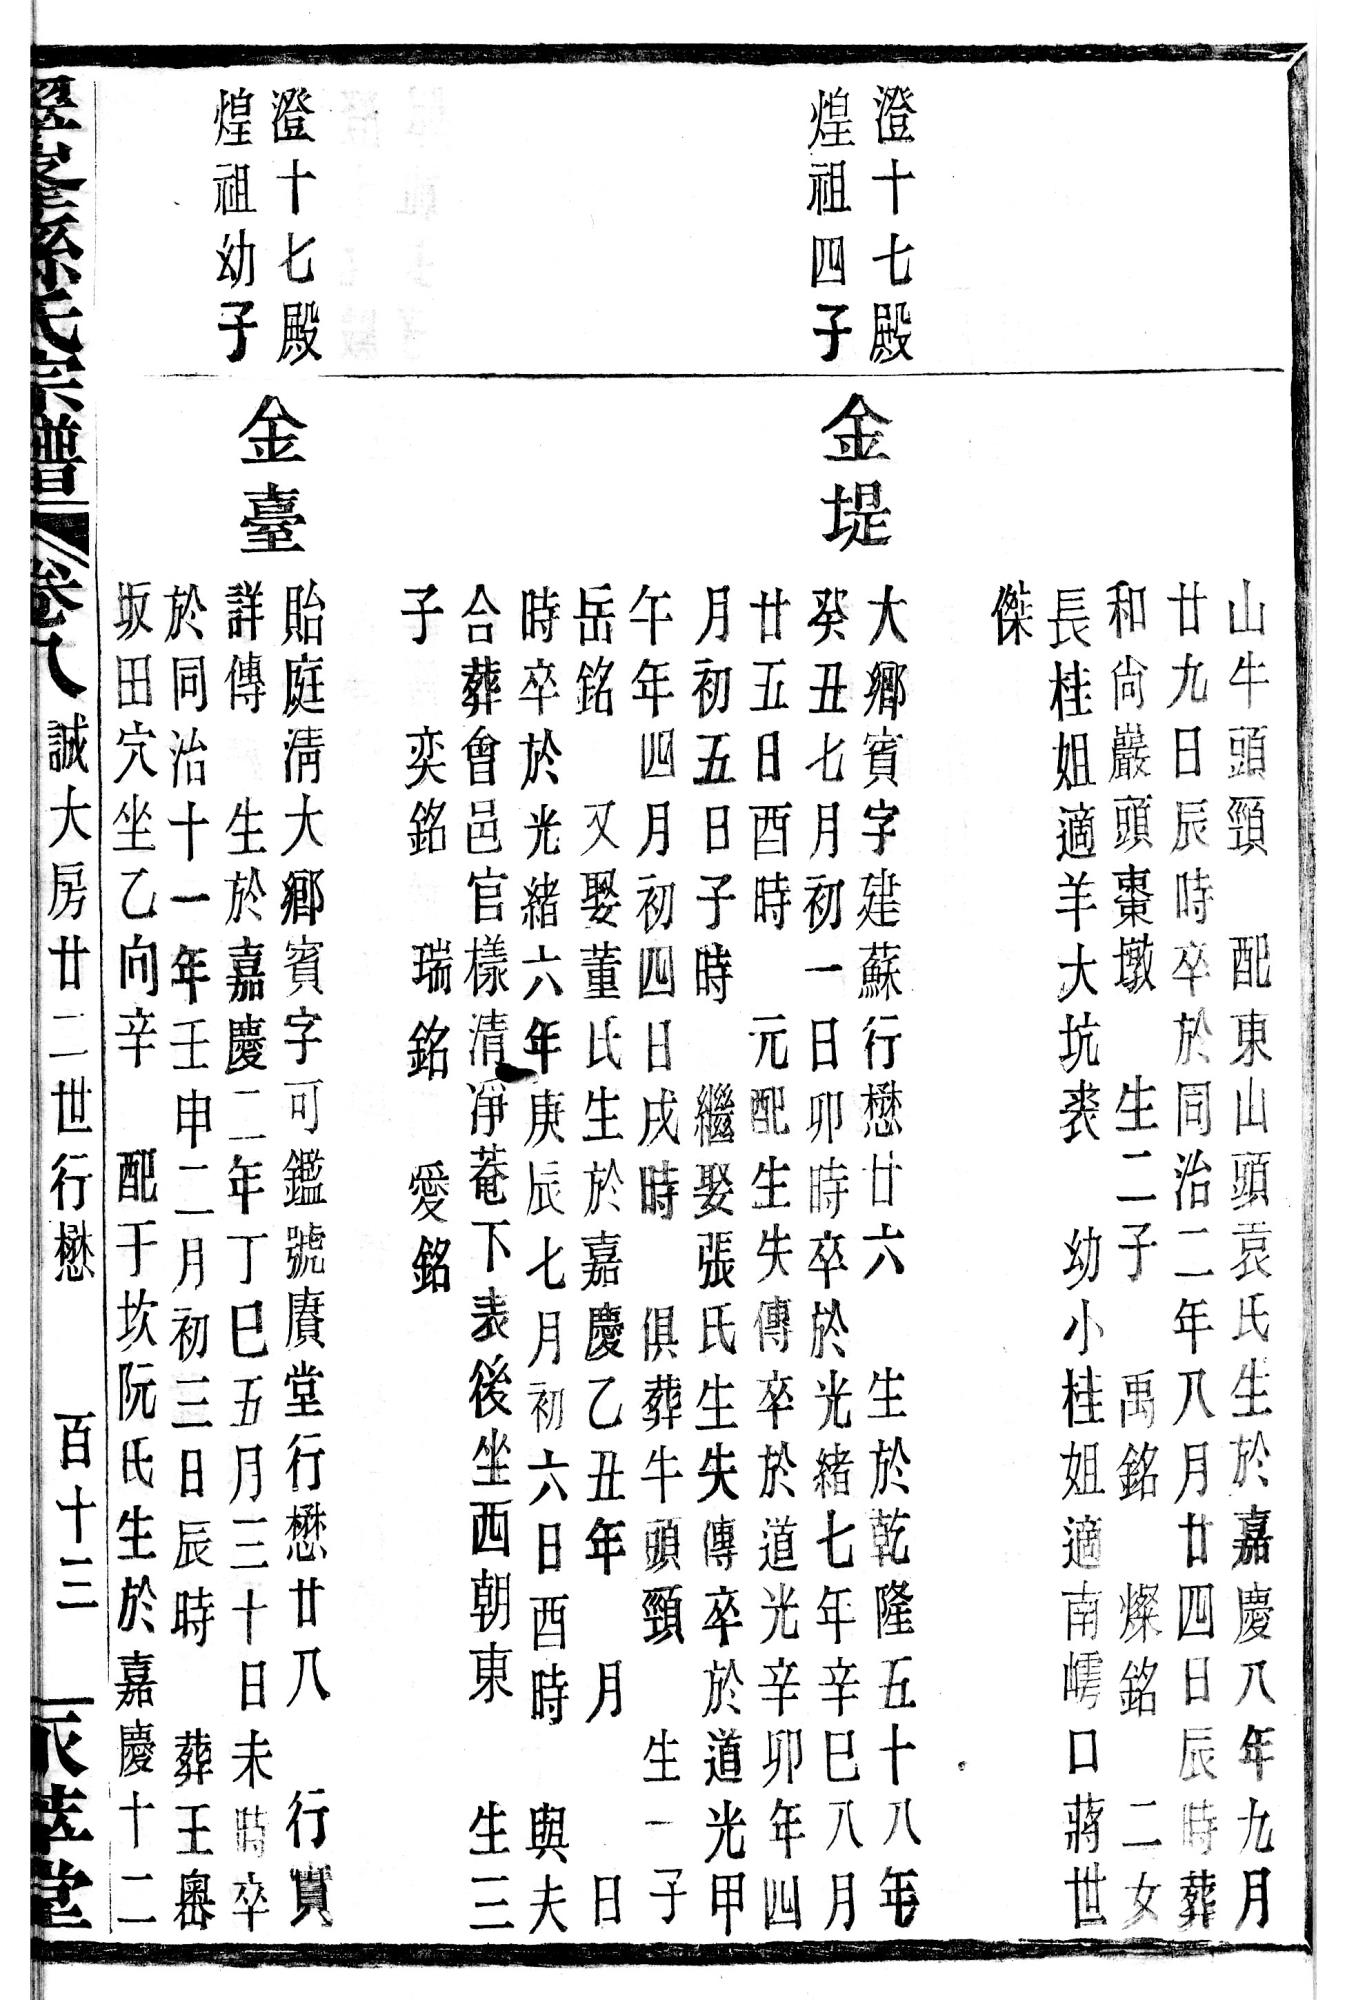 山牛頭頸　配東山頭袁氏生於嘉慶八年九月
廿九日辰時卒於同治二年八月廿四日辰時葬
和尙巖頭棗墩　生二子　禹銘　燦銘　二女
長桂姐適羊大坑裘　幼小桂姐適南嶀口蔣世
傑
澄十七殿
煌祖四子
金堤
大鄉賓字建蘇行懋廿六　生於乾隆五十八年
癸丑七月初一日卯時卒於光緒七年辛巳八月
廿五日酉時　元配生失傳卒於道光辛卯年四
月初五日子時　繼娶張氏生失傳卒於道光甲
午年四月初四日戌時　俱葬牛頭頸　生一子
岳銘　又娶董氏生於嘉慶乙丑年　月　日
時卒於光緒六年庚辰七月初六日酉時　與夫
合葬會邑官樣清凈菴下表後坐西朝東　生三
子　奕銘　瑞銘　愛銘
澄十七殿
煌祖幼子
金臺
貽庭淸大鄉賓字可鑑號賡堂行懋廿八　行實
詳傳　生於嘉慶二年丁巳五月三十日未時卒
於同治十一年壬申二月初三日辰時　葬王嶴
坂田穴坐乙向辛　配于坎阮氏生於嘉慶十二
孫氏宗譜　卷八　誠大房廿二世行懋　百十三　堂